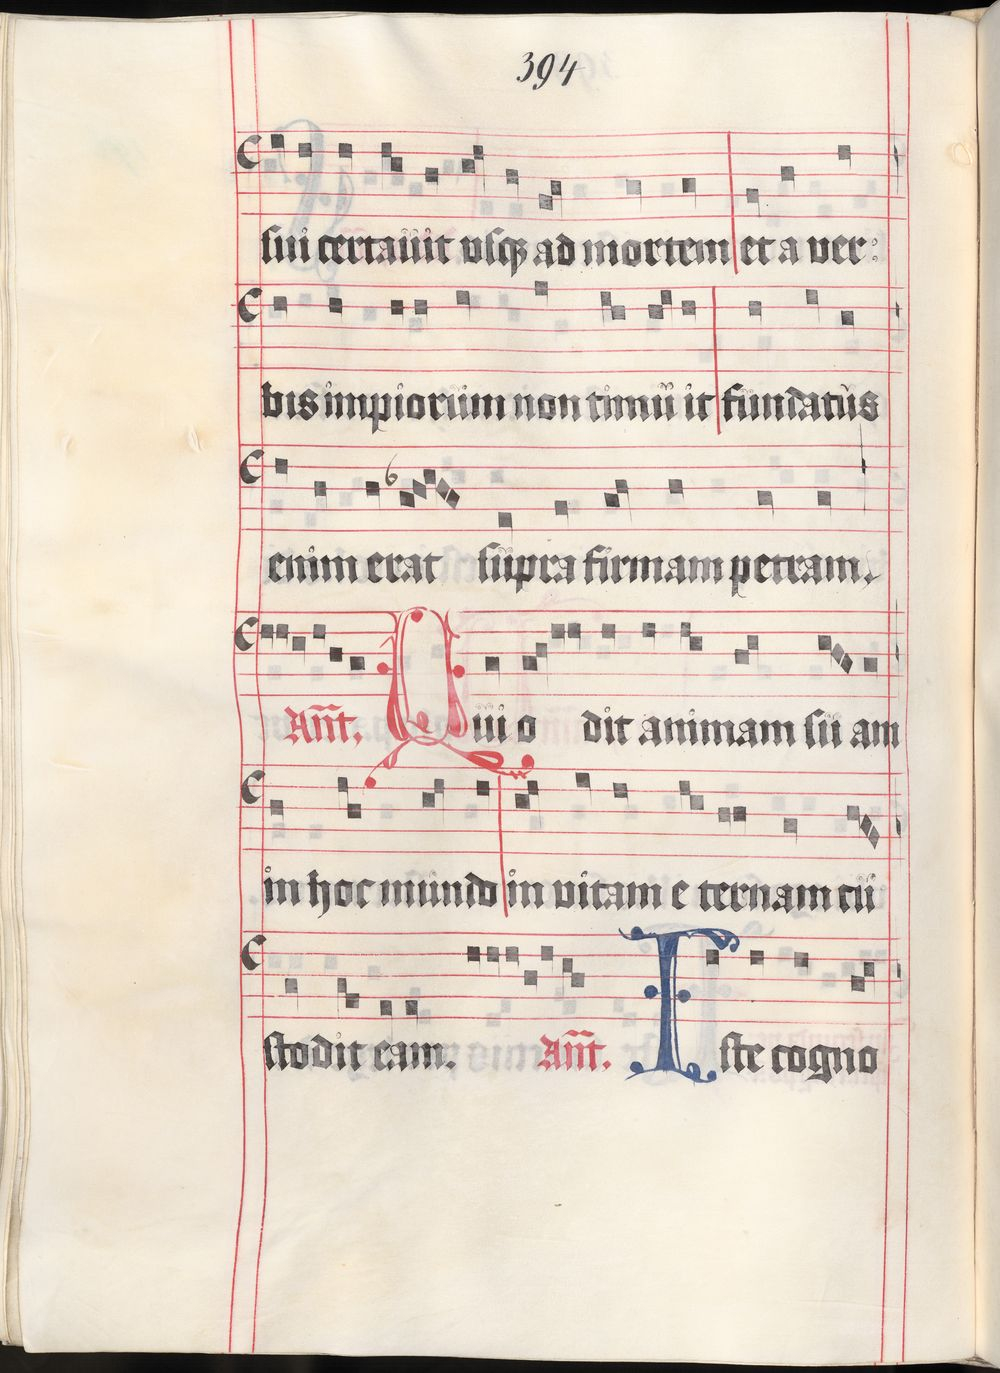 394
sui certauit vsqꝫ ad mortem et a ver:
bis impiorum non timu it fundatus
enim erat supra firmam petram.
Añt. Qui o dit animam su am
in hoc mundo in vitam e ternam cu
stodit eam. Añt. Iste cogno